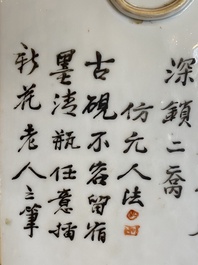 深鎖二喬
仿元人法
古硯不容留宿
墨清瓶任意插
新花老人之筆